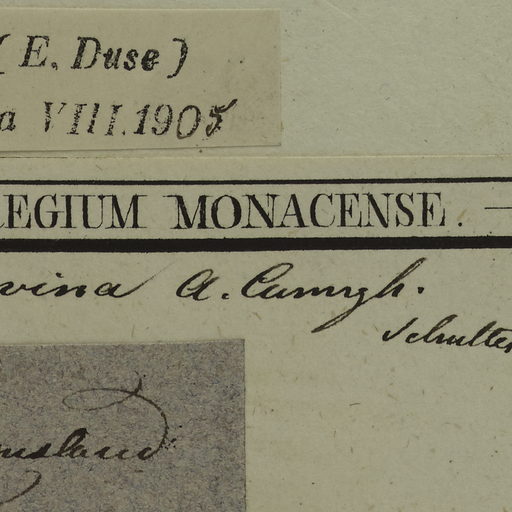 ( E. Duse )
a VIII.1905
REGIUM MONACENSE. —
vina A. Cunngh.
Schultes
ensland